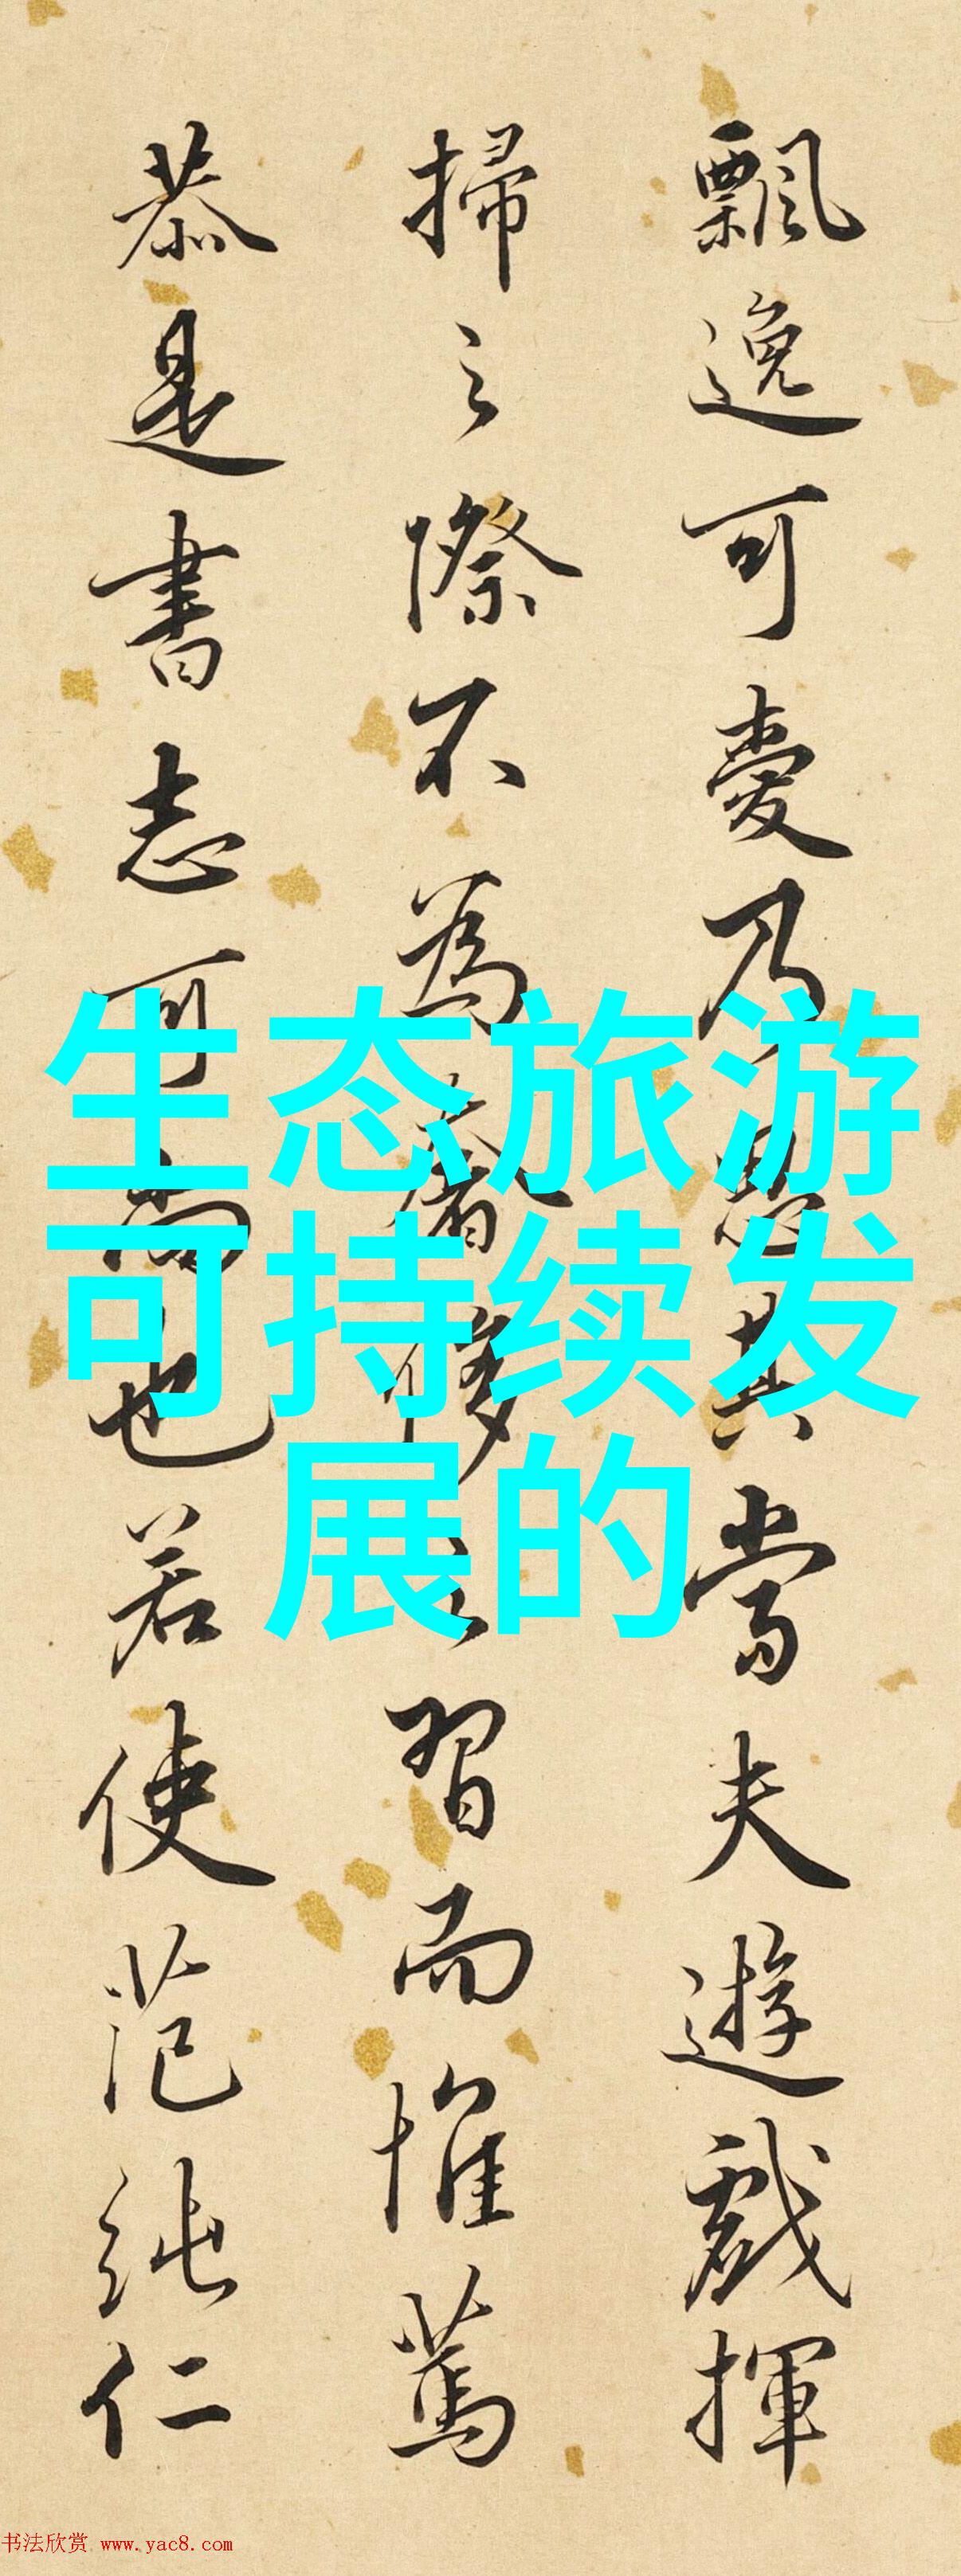 飄逸可愛乃思其當夫遊戲揮
掃之際不為奢侈之習而惟篤
恭是書志可尚也若使范純仁
生态旅游
可持续发
展的
书法欣赏 www.yac8.com